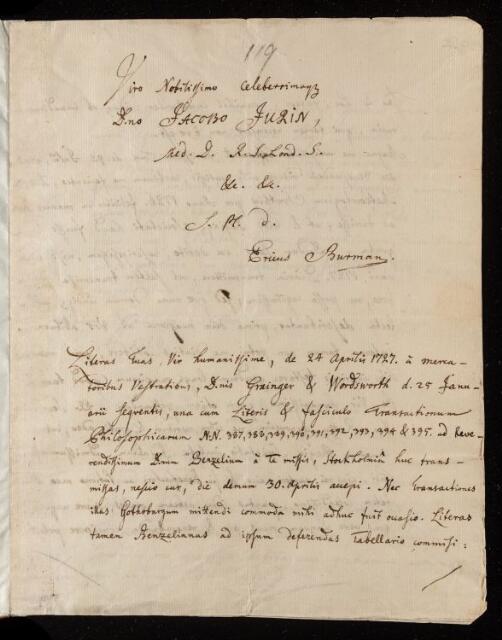 119
Viro Nobilissimo Celeberrimoq;
D.no JACOBO JURIN,
Med. D. R. S. Lond. S.
&c. &c.
S. Pl. d.
Ericus Burman.
Literas Tuas, Vir humanissime, de 24 Aprilis 1727. à merca-
toribus Vestratibus, Dnis Grainger & Wordsworth d. 25 Janu-
arii seqventis, una cum Literis & fasciculo Transactionum
Philosophicarum N.N. 387, 388, 389, 390, 391, 392, 393, 394 & 395. ad Reve-
rendissimum Dnum Benzelium à te missis, Stockholmiâ huc trans-
missas, nescio cur, die demum 30. Aprilis accepi. Nec Transactiones
illas Gothoburgum mittendi commoda mihi adhuc fuit occasio. Literas
tamen Benzelianas ad ipsum deferendas Tabellario commisi: